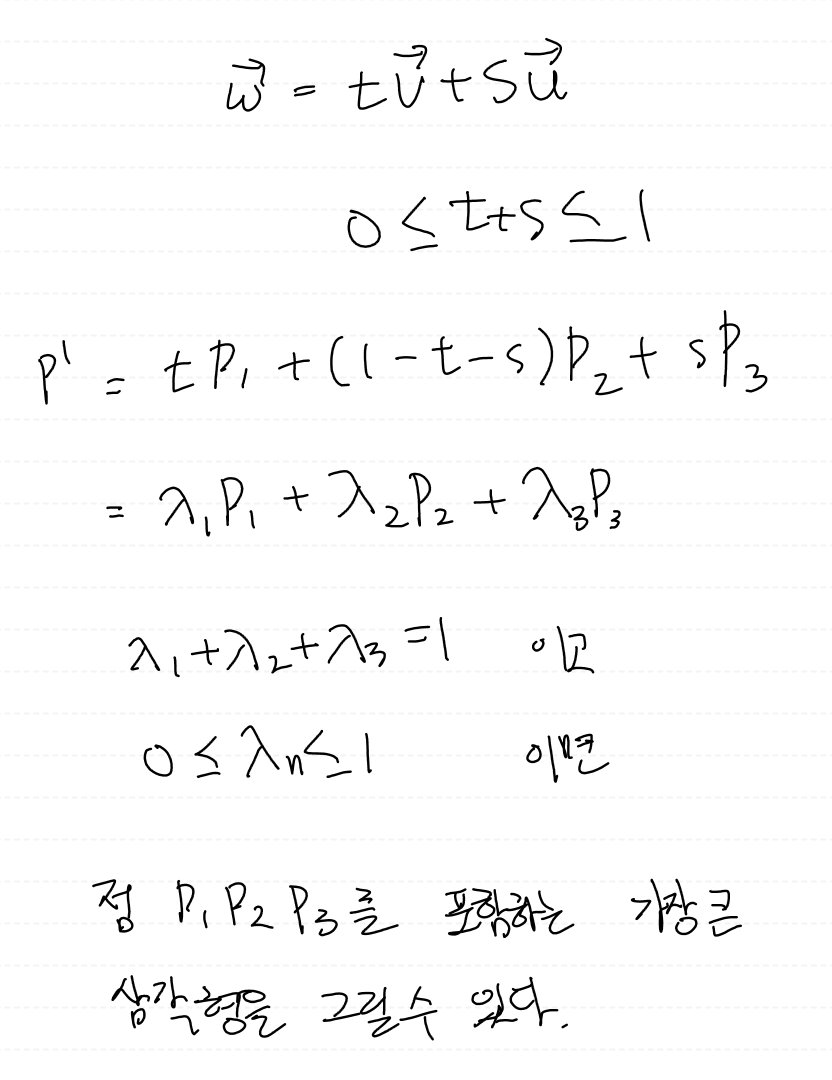 w⃗ = tv⃗ + su⃗
0 ≤ t+s ≤ 1
P' = tP₁ + (1-t-s)P₂ + sP₃
= λ₁P₁ + λ₂P₂ + λ₃P₃
λ₁+λ₂+λ₃=1 이고
0 ≤ λn ≤ 1 이면
점 P₁P₂P₃를 포함하는 가장 큰
삼각형을 그릴 수 있다.